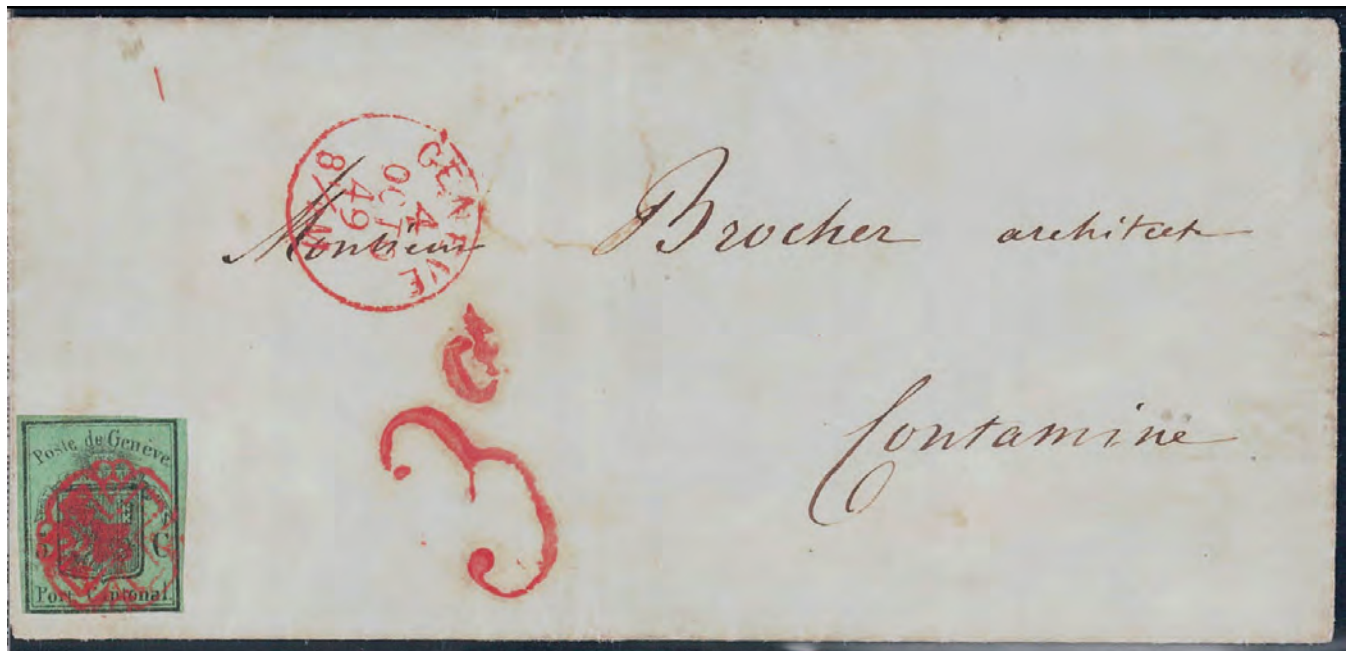 GENEVE
4
OCT
49
Monsieur Brocher architect
3 e
Contamine
Poste de Genève
5 C
Port Cantonal.